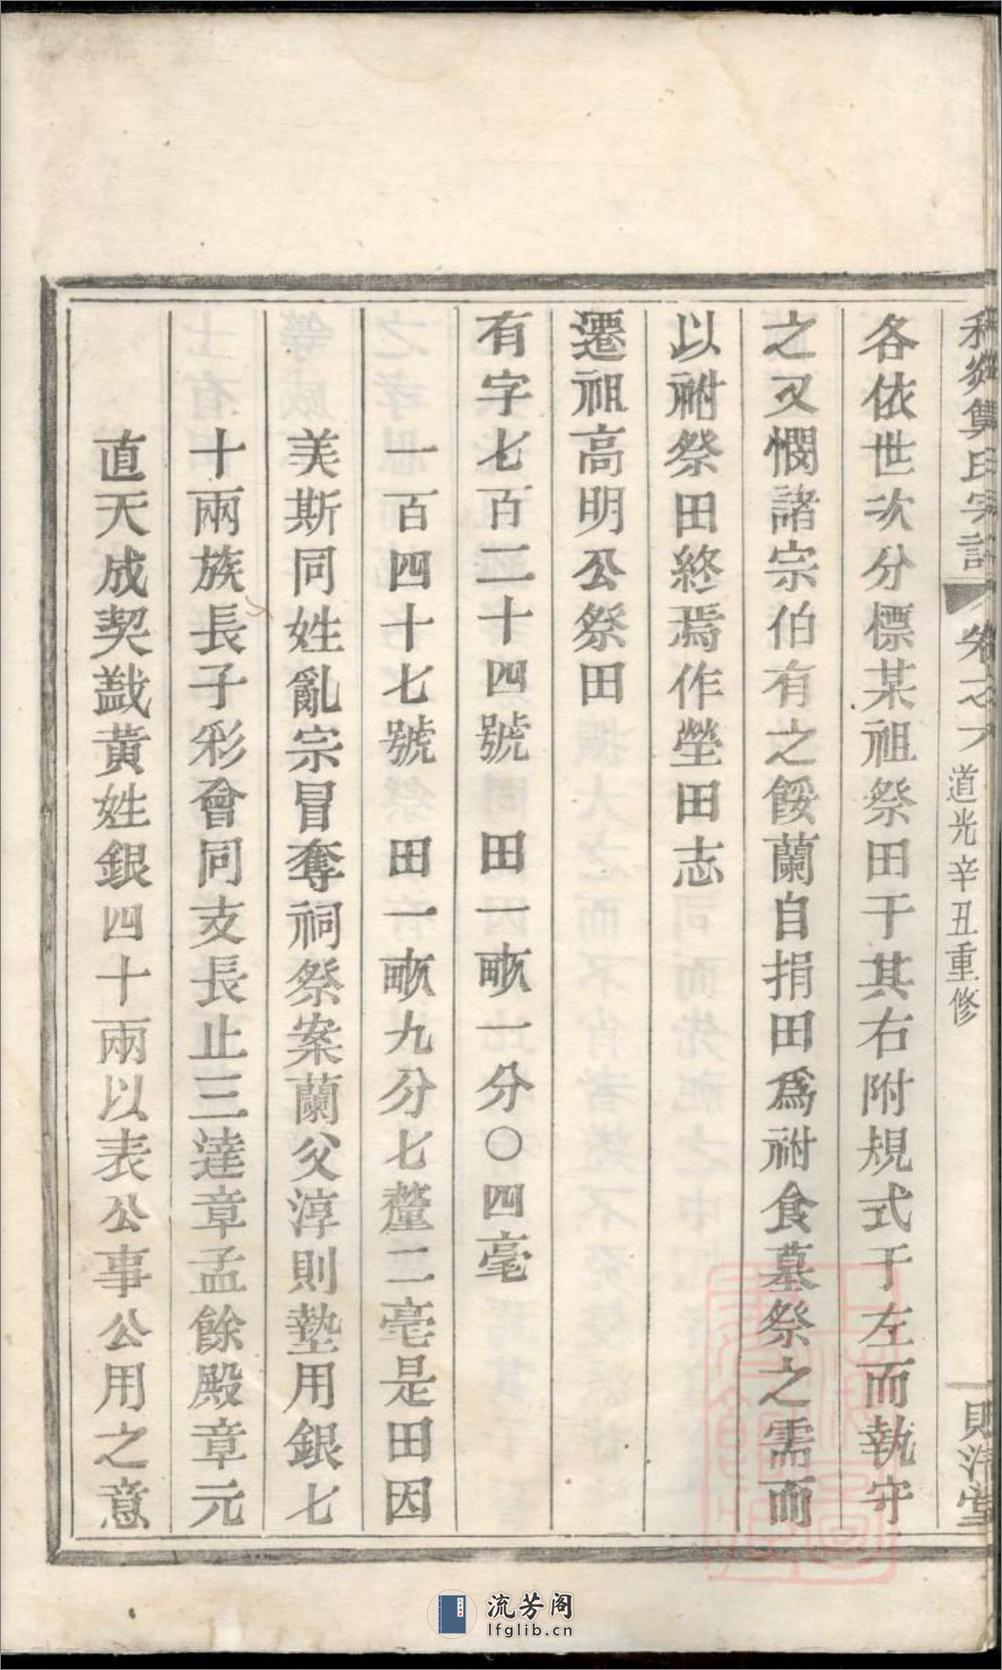 道光辛丑重修
各依世次分標某祖祭田于其右附規式于左而執守
之又憫諸宗伯有之餒蘭自捐田爲祔食墓祭之需而
以祔祭田終焉作塋田志
遷祖高明公祭田
有字七百二十四號 田一畝一分〇四毫
一百四十七號 田一畝九分七釐二毫是田因
美斯同姓亂宗冒奪祠祭案蘭父淳則墊用銀七
十兩族長子彩會同支長止三達章孟餘殿章元
直天成契戤黃姓銀四十兩以表公事公用之意
流芳阁
lfglib.cn